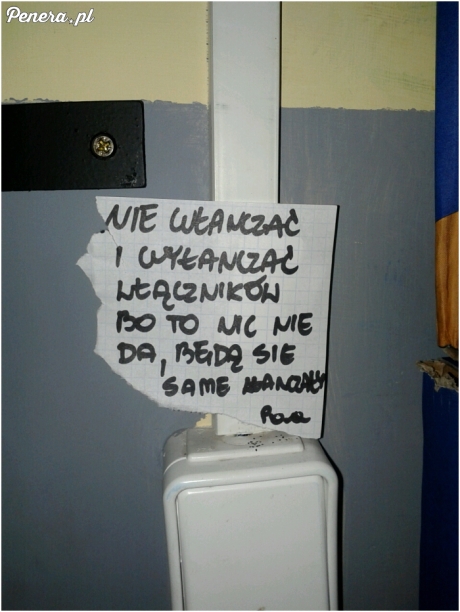 Penera.pl
NIE WŁANCZAĆ
I WYŁANCZAĆ
WŁĄCZNIKÓW
BO TO NIC NIE
DA, BĘDĄ SIE
SAME